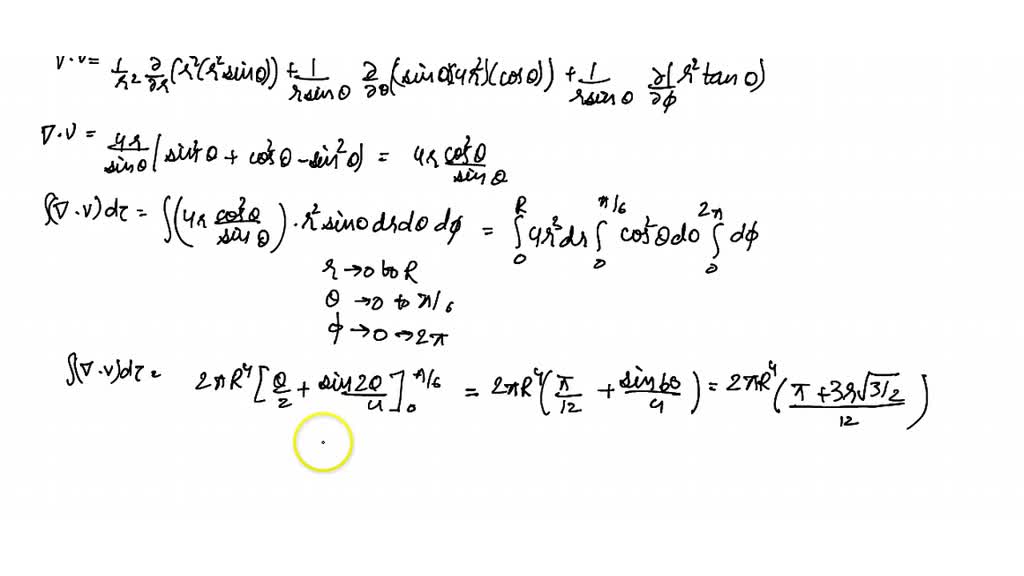 ∇·v = 1/r² ∂/∂r (r²(r² sinθ)) + 1/(r sinθ) ∂/∂θ (sinθ(4r²)(cosθ)) + 1/(r sinθ) ∂/∂ϕ (r² tanθ)
∇·v = 4r/sinθ (sin²θ + cos²θ - sin²θ) = 4r cos²θ/sinθ
∫(∇·v)dτ = ∫(4r cos²θ/sinθ)·r² sinθ dr dθ dϕ = ∫₀ᴿ 4r³dr ∫₀^(π/6) cos²θdθ ∫₀^(2π) dϕ
r → 0 to R
θ → 0 to π/6
ϕ → 0 → 2π
∫(∇·v)dτ = 2πR⁴[θ/2 + sin2θ/4]₀^(π/6) = 2πR⁴(π/12 + sin60/4) = 2πR⁴((π + 3√3/2)/12)